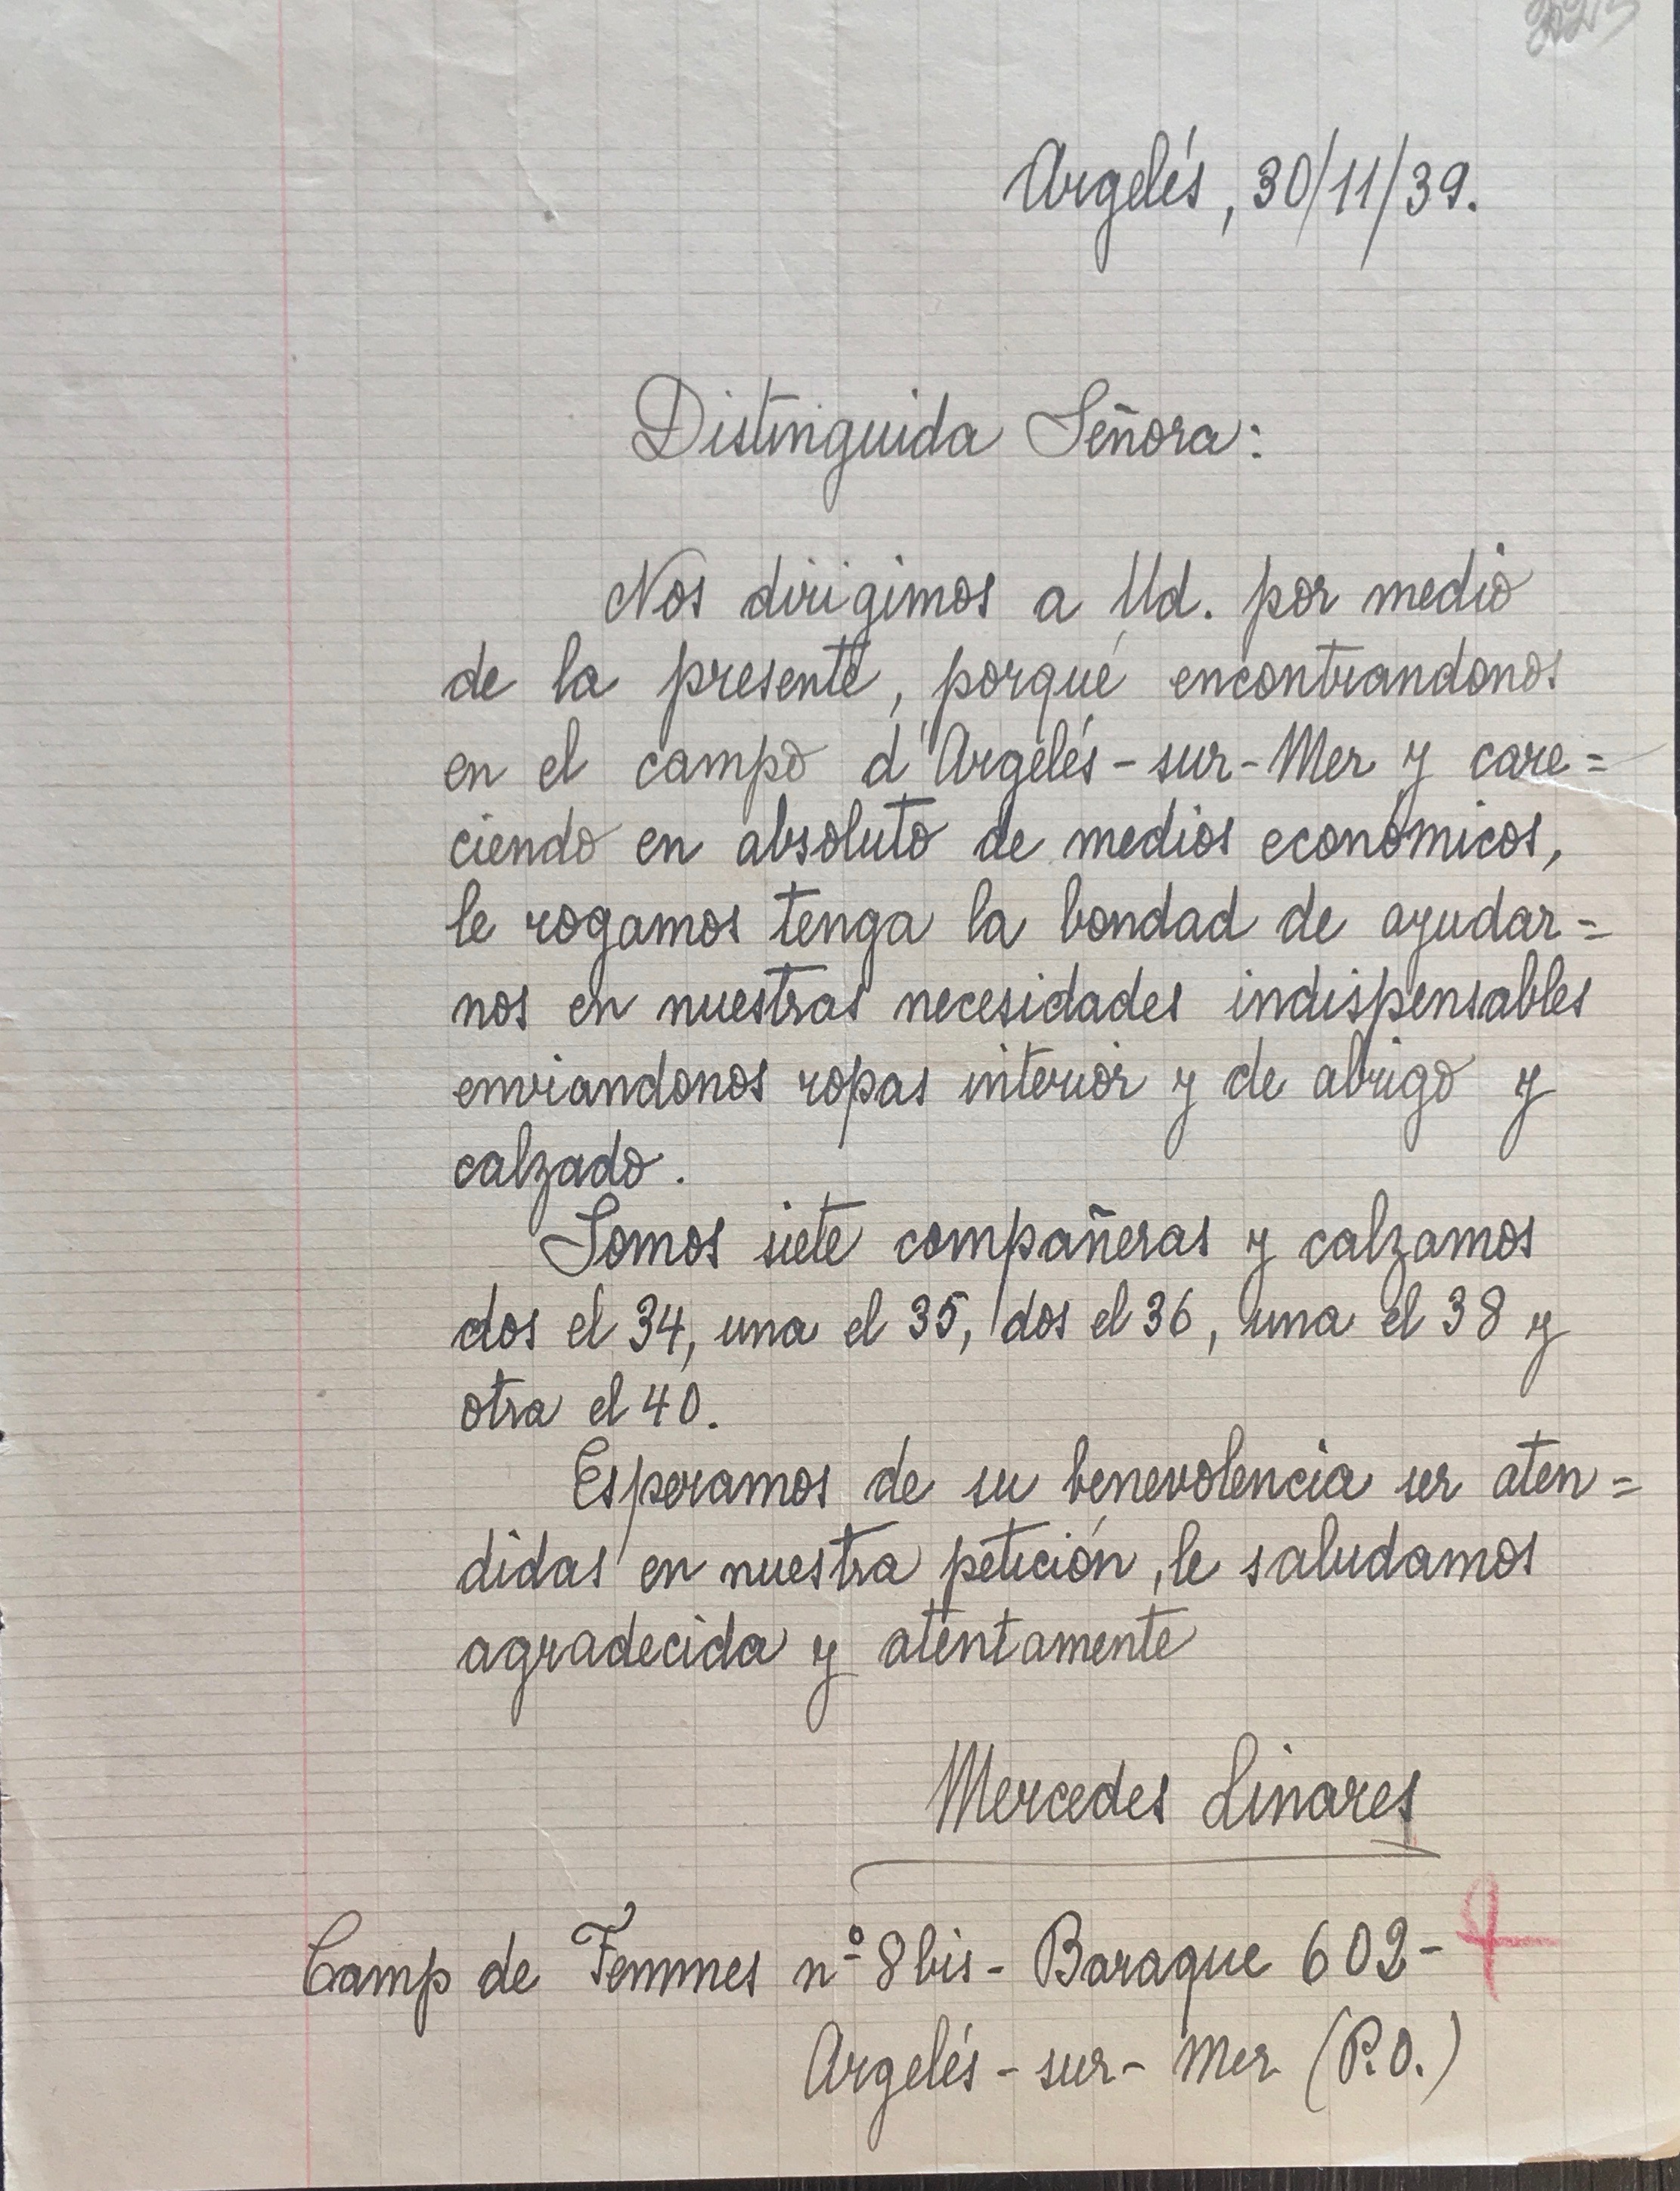 Argelés, 30/11/39.
Distinguida Señora:
Nos dirigimos a Ud. por medio
de la presente, porqué encontrandonos
en el campo d'Argelés-sur-Mer y care=
ciendo en absoluto de medios económicos,
le rogamos tenga la bondad de ayudar=
nos en nuestras necesidades indispensables
enviandonos ropas interior y de abrigo y
calzado.
Somos siete compañeras y calzamos
dos el 34, una el 35, dos el 36, una el 38 y
otra el 40.
Esperamos de su benevolencia ser aten=
didas en nuestra petición, le saludamos
agradecida y atentamente
Mercedes Linares
Camp de Femmes nº 8 bis - Baraque 602-
Argelés-sur-Mer (P.O.)